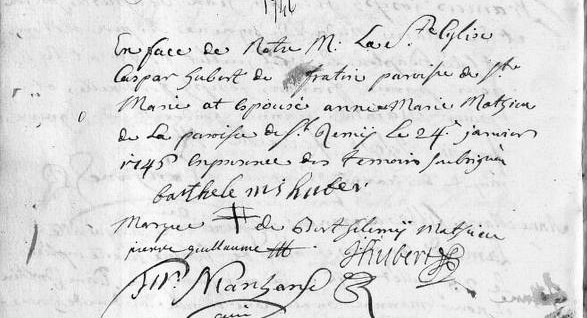 1746
En face de Notre M: La Ste Eglise
Gaspar hubert de fratin paroisse de Ste
Marie at Epousé anne Marie Mathieu
de La paroisse de St Remy le 24e janvier
1746 Enpresence des temoins soubsignés
barthelemi huber
Marque de Barthelemy Mathieu
pierre guillaume JHubert